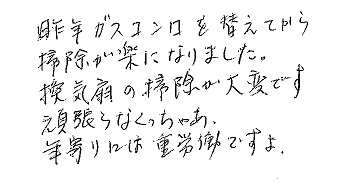 昨年ガスコンロを替えてから
掃除が楽になりました。
換気扇の掃除が大変です
頑張らなくっちゃあ、
年寄りには重労働ですよ、